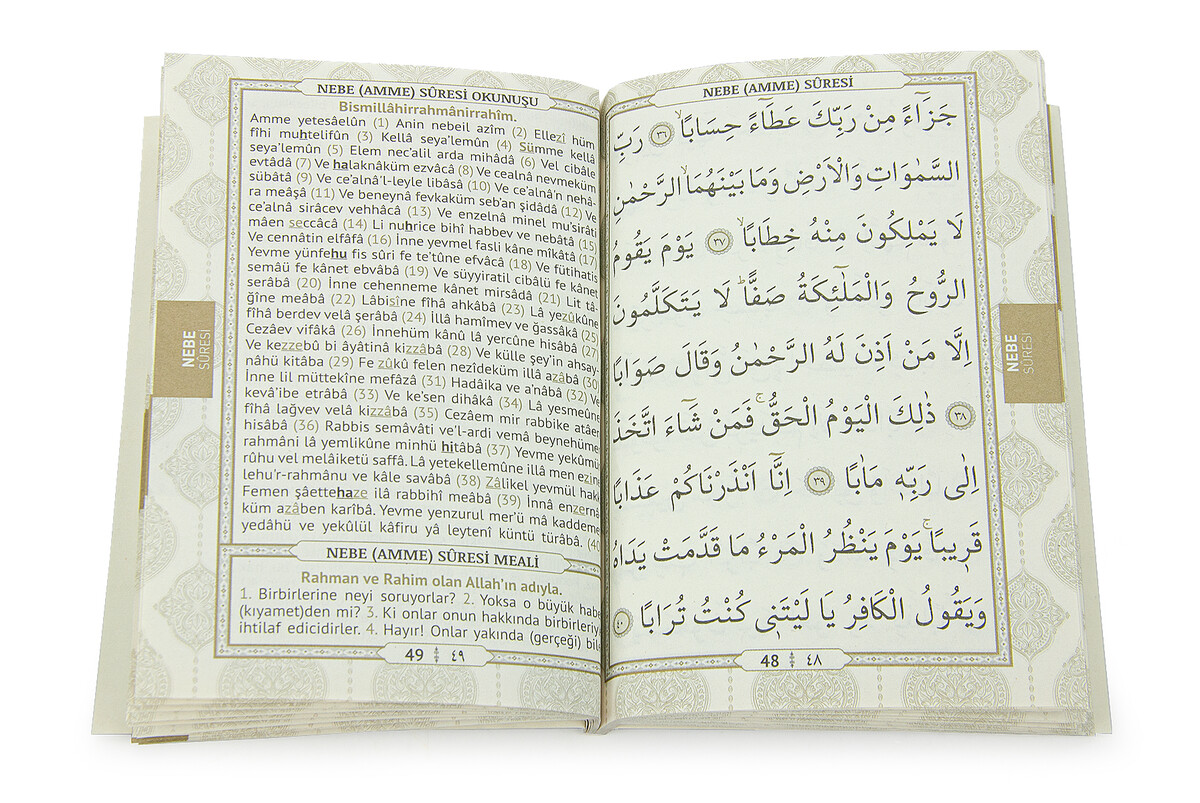 NEBE (AMME) SÛRESİ
جَزَٓاءً مِنْ رَبِّكَ عَطَٓاءً حِسَابًاۙ ٣٦ رَبِّ
السَّمٰوَاتِ وَالْاَرْضِ وَمَا بَيْنَهُمَا الرَّحْمٰنِ
لَا يَمْلِكُونَ مِنْهُ خِطَابًاۙ ٣٧ يَوْمَ يَقُومُ
الرُّوحُ وَالْمَلٰٓئِكَةُ صَفًّاۜ لَا يَتَكَلَّمُونَ
اِلَّا مَنْ اَذِنَ لَهُ الرَّحْمٰنُ وَقَالَ صَوَابًا
٣٨ ذٰلِكَ الْيَوْمُ الْحَقُّۚ فَمَنْ شَٓاءَ اتَّخَذَ
اِلٰى رَبِّهٖ مَاٰبًا ٣٩ اِنَّٓا اَنْذَرْنَاكُمْ عَذَابًا
قَرٖيبًاۚ يَوْمَ يَنْظُرُ الْمَرْءُ مَا قَدَّمَتْ يَدَاهُ
وَيَقُولُ الْكَافِرُ يَا لَيْتَنٖى كُنْتُ تُرَابًا ٤٠
48 ٤٨
NEBE
SÛRESİ
NEBE (AMME) SÛRESİ OKUNUŞU
Bismillâhirrahmânirrahîm.
Amme yetesâelûn (1) Anin nebeil azîm (2) Ellezî hüm
fîhi muhtelifûn (3) Kellâ seya'lemûn (4) Sümme kellâ
seya'lemûn (5) Elem nec'alil arda mihâdâ (6) Vel cibâle
evtâdâ (7) Ve halaknâküm ezvâcâ (8) Ve cealnâ nevmeküm
sübâtâ (9) Ve ce'alnâ'l-leyle libâsâ (10) Ve ce'alnâ'n nehâ-
ra meâşâ (11) Ve beneynâ fevkaküm seb'an şidâdâ (12) Ve
ce'alnâ sirâcev vehhâcâ (13) Ve enzelnâ minel mu'sirâti
mâen seccâcâ (14) Li nuhrice bihî habbev ve nebâtâ (15)
Ve cennâtin elfâfâ (16) İnne yevmel fasli kâne mîkâtâ (17)
Yevme yünfehu fis sûri fe te'tûne efvâcâ (18) Ve fütihatis
semâü fe kânet ebvâbâ (19) Ve süyyiratil cibâlü fe kânet
serâbâ (20) İnne cehenneme kânet mirsâdâ (21) Lit tâ-
ğîne meâbâ (22) Lâbisîne fîhâ ahkâbâ (23) Lâ yezûkûne
fîhâ berdev velâ şerâbâ (24) İllâ hamîmev ve ğassâkâ (25)
Cezâev vifâkâ (26) İnnehüm kânû lâ yercûne hisâbâ (27)
Ve kezzebû bi âyâtinâ kizzâbâ (28) Ve külle şey'in ahsay-
nâhü kitâba (29) Fe zûkû felen nezîdeküm illâ azâbâ (30)
İnne lil müttekîne mefâzâ (31) Hadâika ve a'nâbâ (32) Ve
kevâ'ibe etrâbâ (33) Ve ke'sen dihâkâ (34) Lâ yesmeûne
fîhâ lağvev velâ kizzâbâ (35) Cezâem mir rabbike atâen
hisâbâ (36) Rabbis semâvâti ve'l-ardi vemâ beynehüme
rahmâni lâ yemlikûne minhü hitâbâ (37) Yevme yekûmü
rûhu vel melâiketü saffâ. Lâ yetekellemûne illâ men ezine
lehu'r-rahmânu ve kâle savâbâ (38) Zâlikel yevmül hak
Femen şâettehaze ilâ rabbihî meâbâ (39) İnnâ enzernâ
küm azâben karîbâ. Yevme yenzurul mer'ü mâ kaddeme
yedâhü ve yekûlül kâfiru yâ leytenî küntü türâbâ. (40
NEBE (AMME) SÛRESİ MEALİ
Rahman ve Rahim olan Allah'ın adıyla.
1. Birbirlerine neyi soruyorlar? 2. Yoksa o büyük habe
(kıyamet)den mi? 3. Ki onlar onun hakkında birbirleriy
ihtilaf edicidirler. 4. Hayır! Onlar yakında (gerçeği) bil-
49 ٤٩
NEBE
SÛRESİ